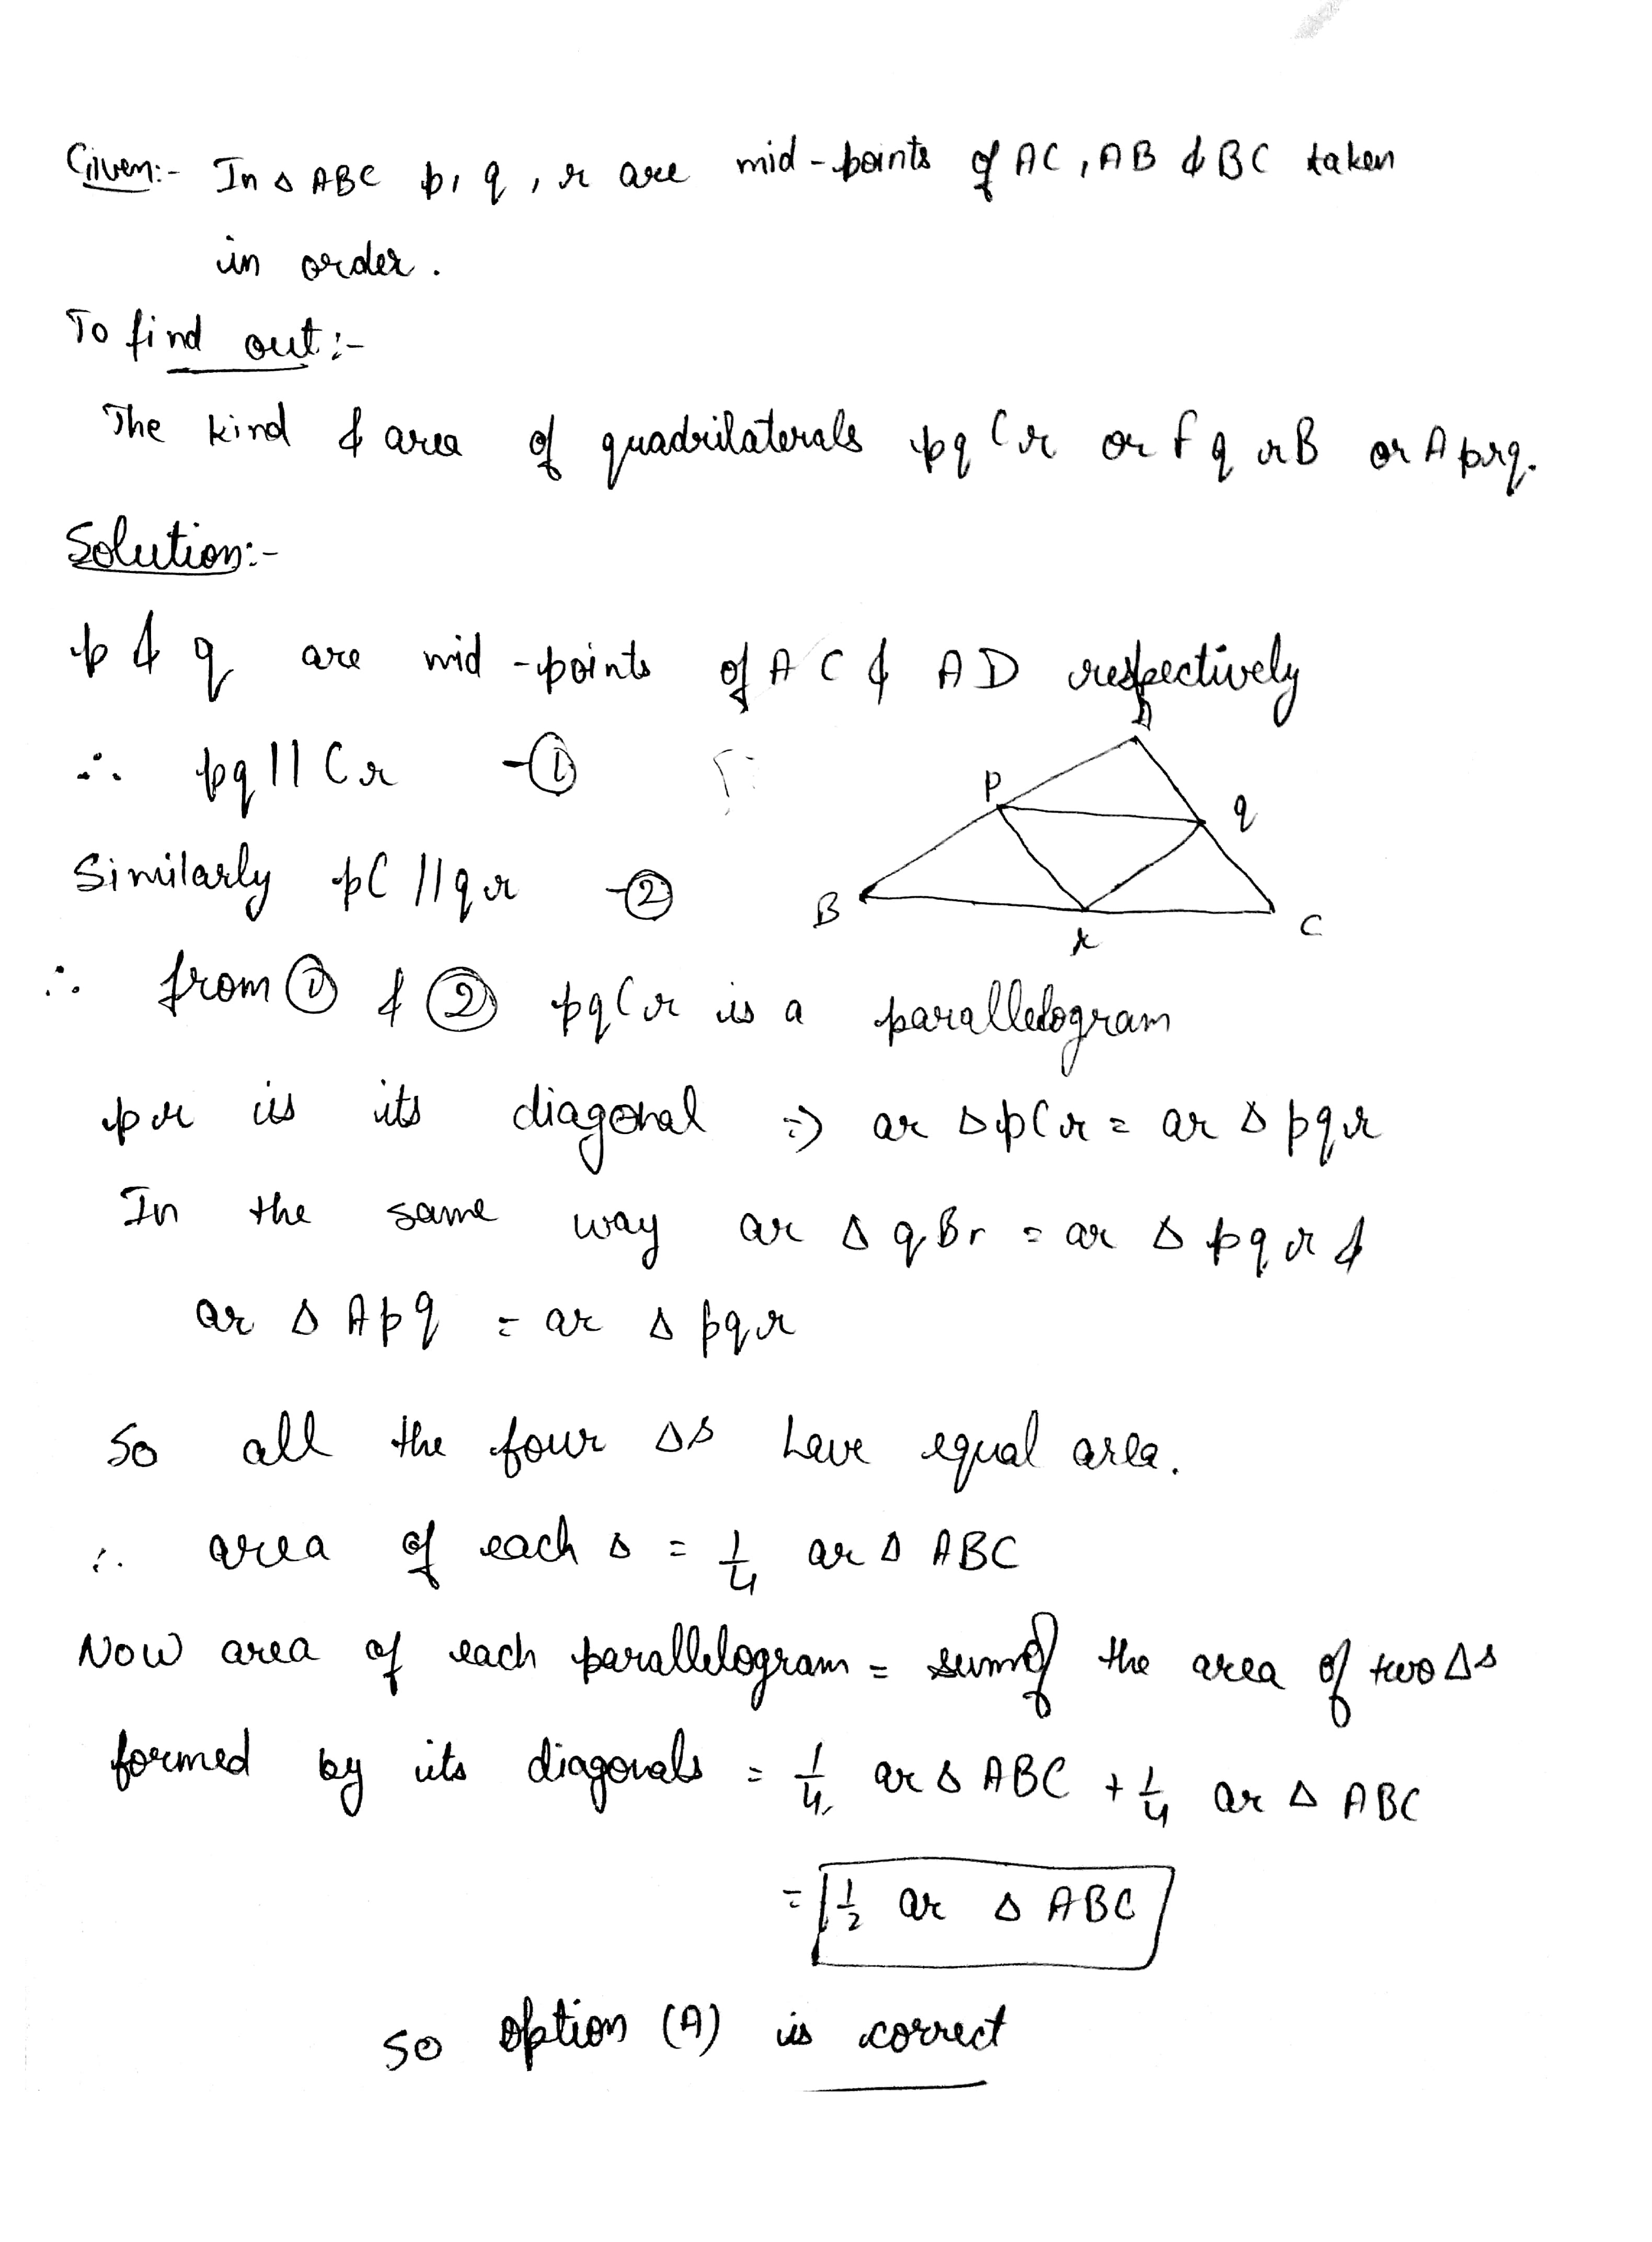 Given:- In △ ABC p, q, r are mid-points of AC, AB & BC taken
in order.
To find out:-
The kind & area of quadrilaterals pqCr or fqrB or Aprq.
Solution:-
p & q are mid-points of AC & AD respectively
∴ pq || Cr -①
Similarly pC || qr -②
P
q
B
r
C
∴ from ① & ② pqCr is a parallelogram
pr is its diagonal ⇒ ar △pCr = ar △ pqr
In the same way ar △ qBr = ar △ pqr &
ar △ Apq = ar △ pqr
So all the four △s have equal area.
∴ area of each △ = 1/4 ar △ ABC
Now area of each parallelogram = sum of the area of two △s
formed by its diagonals = 1/4 ar △ ABC + 1/4 ar △ ABC
= 1/2 ar △ ABC
So option (A) is correct